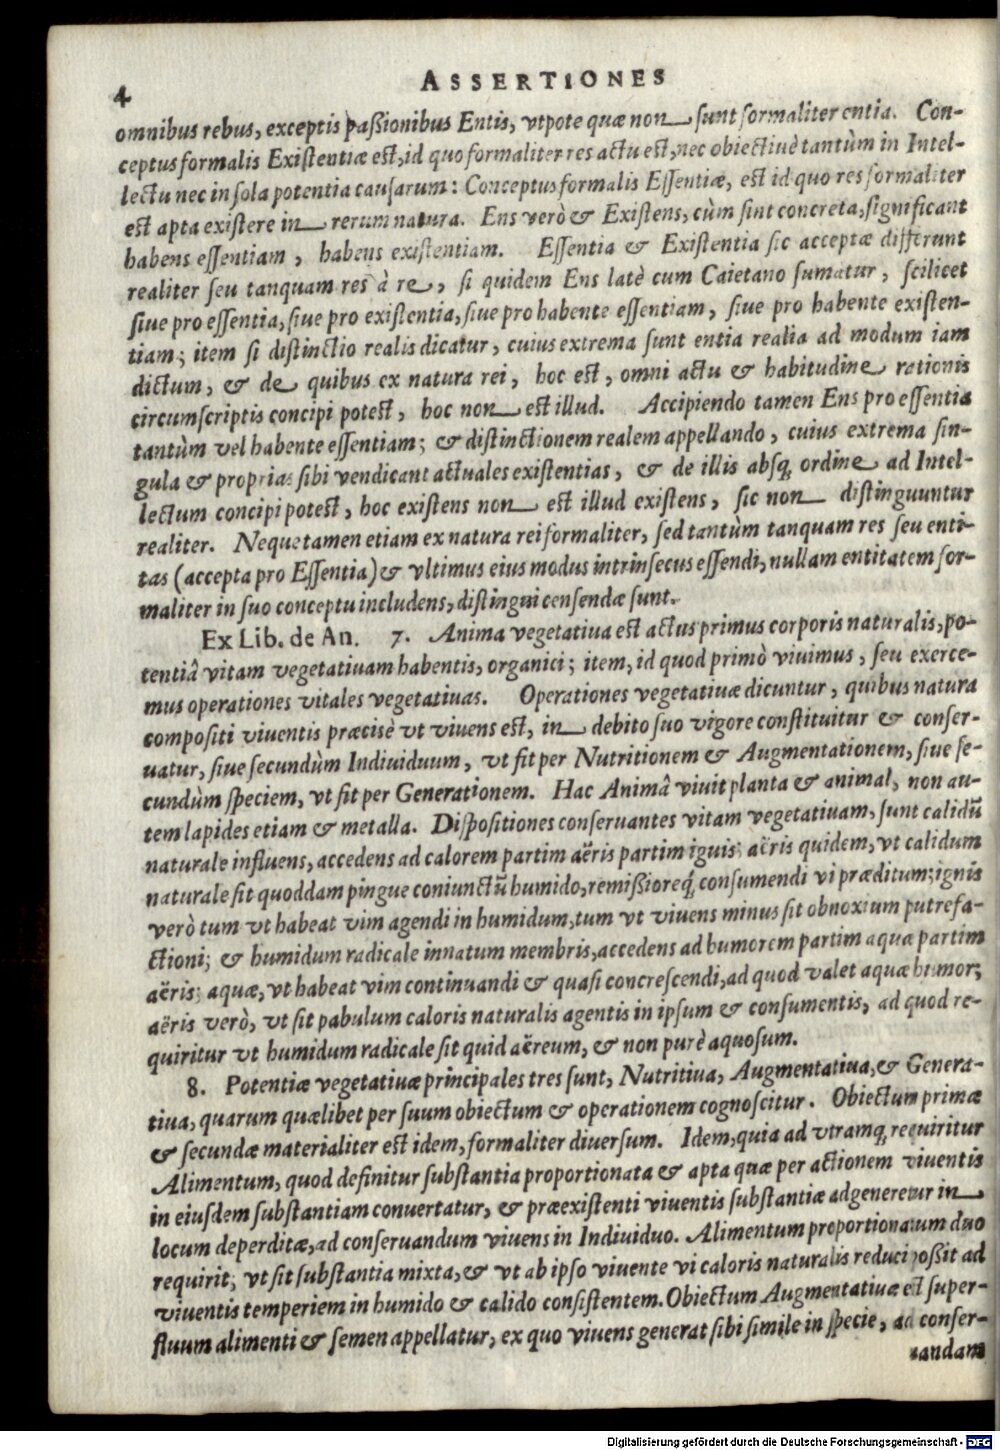 4
ASSERTIONES
omnibus rebus, exceptis paßionibus Entis, vtpote quæ non sunt formaliter entia. Con-
ceptus formalis Existentiæ est, id quo formaliter res actu est, nec obiectiuè tantùm in Intel-
lectu nec in sola potentia causarum: Conceptus formalis Essentiæ, est id quo res formaliter
est apta existere in rerum natura. Ens verò & Existens, cùm sint concreta, significant
habens essentiam, habens existentiam. Essentia & Existentia sic acceptæ differunt
realiter seu tanquam res à re, si quidem Ens latè cum Caietano sumatur, scilicet
siue pro essentia, siue pro existentia, siue pro habente essentiam, siue pro habente existen-
tiam; item si distinctio realis dicatur, cuius extrema sunt entia realia ad modum iam
dictum, & de quibus ex natura rei, hoc est, omni actu & habitudine rationis
circumscriptis concipi potest, hoc non est illud. Accipiendo tamen Ens pro essentia
tantùm vel habente essentiam; & distinctionem realem appellando, cuius extrema sin-
gula & proprias sibi vendicant actuales existentias, & de illis absq; ordine ad Intel-
lectum concipi potest, hoc existens non est illud existens, sic non distinguuntur
realiter. Neque tamen etiam ex natura rei formaliter, sed tantùm tanquam res seu enti-
tas (accepta pro Essentia) & vltimus eius modus intrinsecus essendi, nullam entitatem for-
maliter in suo conceptu includens, distingui censendæ sunt.
Ex Lib. de An. 7. Anima vegetatiua est actus primus corporis naturalis, po-
tentiâ vitam vegetatiuam habentis, organici; item, id quod primò viuimus, seu exerce-
mus operationes vitales vegetatiuas. Operationes vegetatiuæ dicuntur, quibus natura
compositi viuentis præcisè vt viuens est, in debito suo vigore constituitur & conser-
uatur, siue secundùm Indiuiduum, vt fit per Nutritionem & Augmentationem, siue se-
cundùm speciem, vt fit per Generationem. Hac Animâ viuit planta & animal, non au-
tem lapides etiam & metalla. Dispositiones conseruantes vitam vegetatiuam, sunt calidũ
naturale influens, accedens ad calorem partim aëris partim ignis; aëris quidem, vt calidum
naturale sit quoddam pingue coniunctũ humido, remißioreq́; consumendi vi præditum; ignis
verò tum vt habeat vim agendi in humidum, tum vt viuens minus sit obnoxium putrefa-
ctioni; & humidum radicale innatum membris, accedens ad humorem partim aquæ partim
aëris; aquæ, vt habeat vim continuandi & quasi concrescendi, ad quod valet aquæ humor;
aëris verò, vt sit pabulum caloris naturalis agentis in ipsum & consumentis, ad quod re-
quiritur vt humidum radicale sit quid aëreum, & non purè aquosum.
8. Potentiæ vegetatiuæ principales tres sunt, Nutritiua, Augmentatiua, & Genera-
tiua, quarum quælibet per suum obiectum & operationem cognoscitur. Obiectum primæ
& secundæ materialiter est idem, formaliter diuersum. Idem, quia ad vtramq; requiritur
Alimentum, quod definitur substantia proportionata & apta quæ per actionem viuentis
in eiusdem substantiam conuertatur, & præexistenti viuentis substantiæ adgeneretur in
locum deperditæ, ad conseruandum viuens in Indiuiduo. Alimentum proportionatum duo
requirit; vt sit substantia mixta, & vt ab ipso viuente vi caloris naturalis reduci poßit ad
viuentis temperiem in humido & calido consistentem. Obiectum Augmentatiuæ est super-
fluum alimenti & semen appellatur, ex quo viuens generat sibi simile in specie, ad conser-
uandam
Digitalisierung gefördert durch die Deutsche Forschungsgemeinschaft - DFG